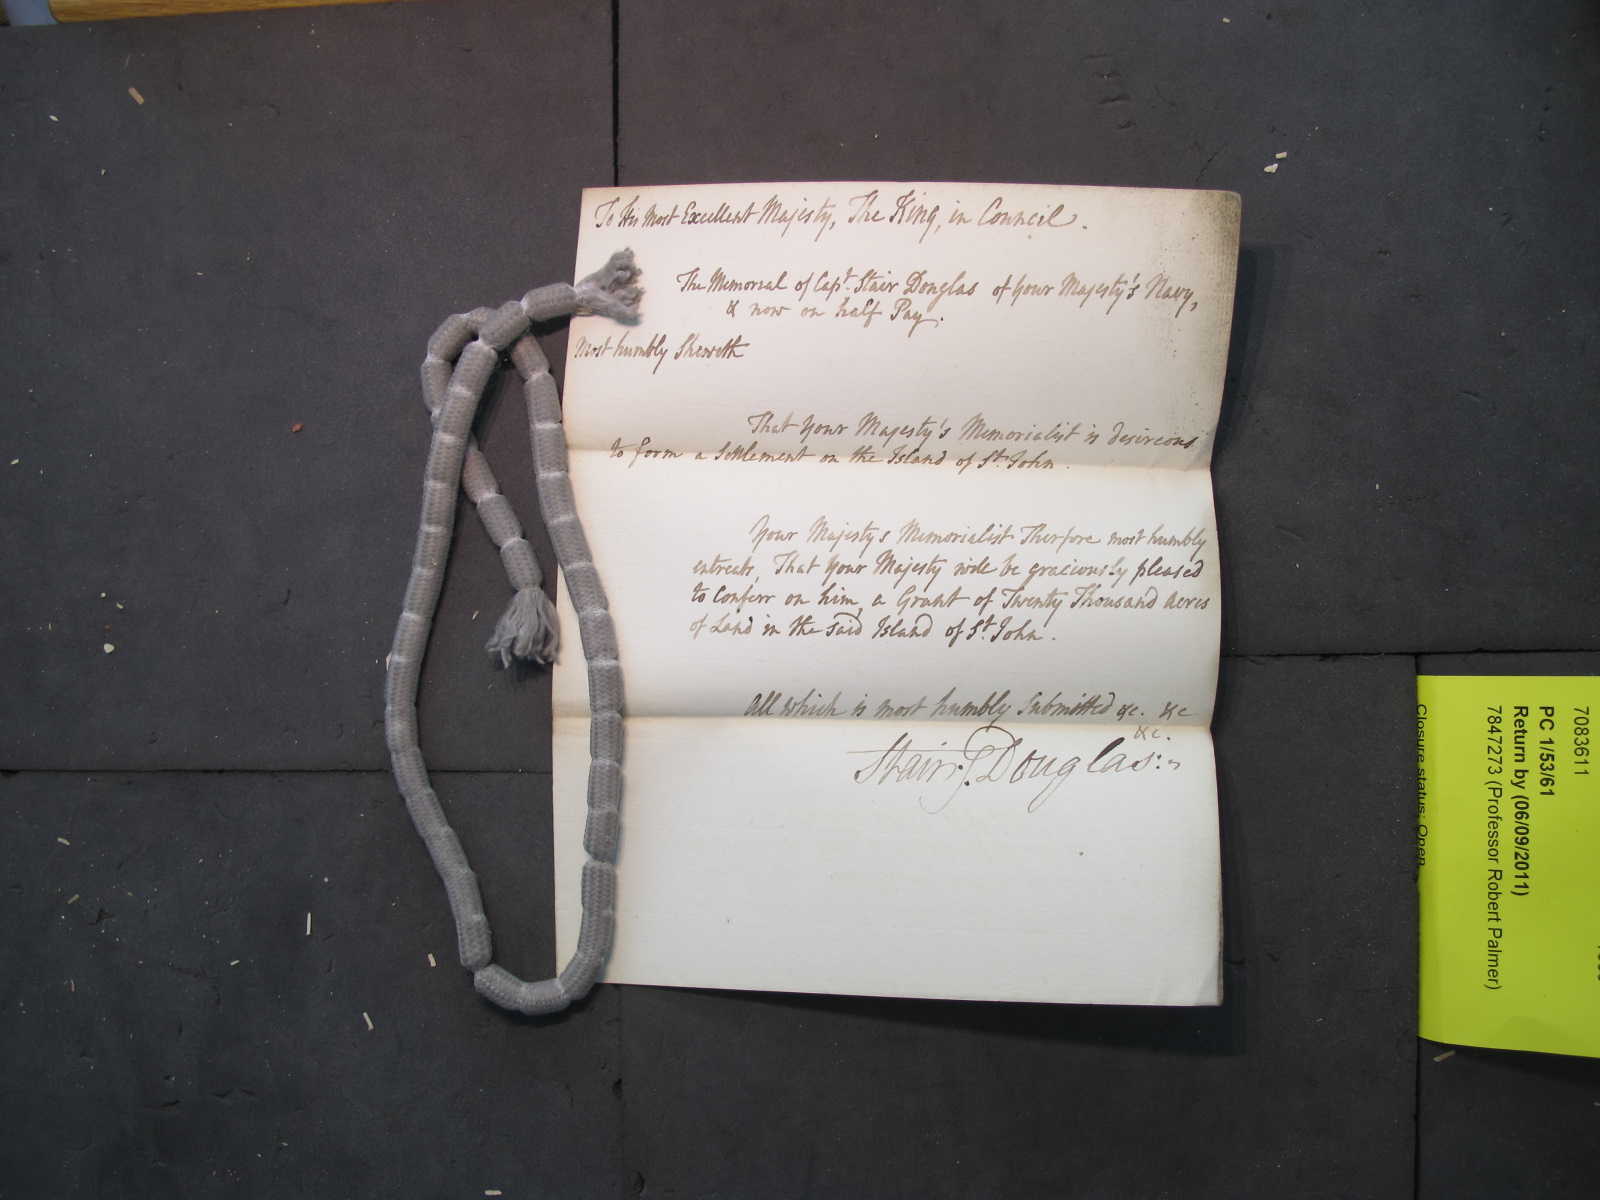 To His Most Excellent Majesty, The King, in Council.
The Memorial of Capt. Stair Douglas of your Majesty's Navy,
& now on half Pay.
Most humbly Sheweth
That your Majesty's Memorialist is desireous
to form a Settlement on the Island of St. John.
Your Majestys Memorialist Therfore most humbly
entreats, That your Majesty will be graciously pleased
to Conferr on him, a Grant of Twenty Thousand Acres
of Land in the said Island of St. John.
All which is most humbly Submitted &c. &c
&c.
Stair: Douglas:
7083611
PC 1/53/61
Return by (06/09/2011)
7847273 (Professor Robert Palmer)
Closure status: Open